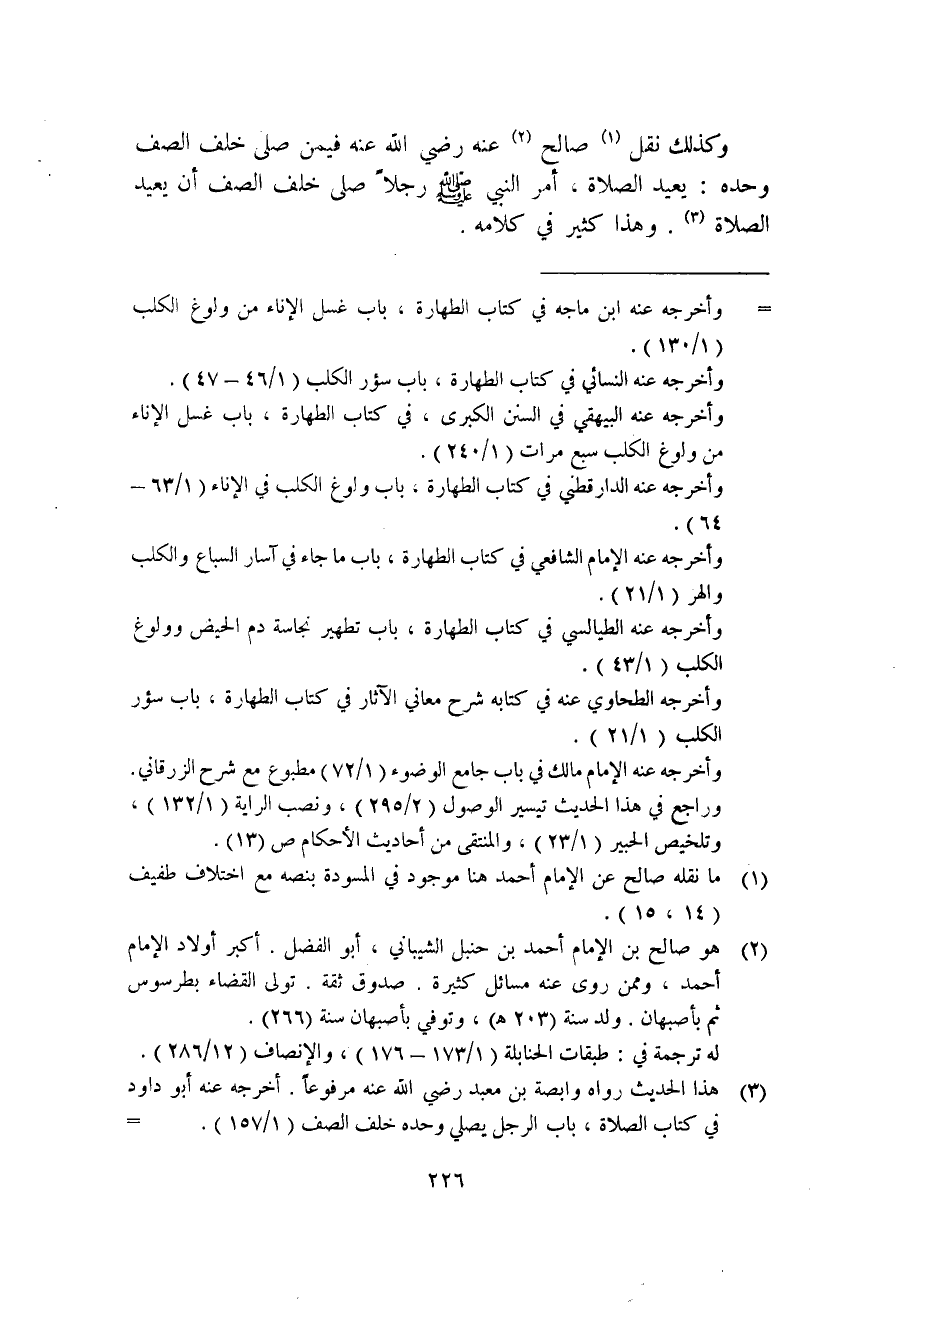 وكذلك نقل (١) صالح (٢) عنه رضي الله عنه فيمن صلى خلف الصف
وحده : يعيد الصلاة ، أمر النبي ﷺ رجلاً صلى خلف الصف أن يعيد
الصلاة (٣) . وهذا كثير في كلامه .
= وأخرجه عنه ابن ماجه في كتاب الطهارة ، باب غسل الإناء من ولوغ الكلب
( ١٣٠/١ ) .
وأخرجه عنه النسائي في كتاب الطهارة ، باب سؤر الكلب ( ٤٦/١ – ٤٧ ) .
وأخرجه عنه البيهقي في السنن الكبرى ، في كتاب الطهارة ، باب غسل الإناء
من ولوغ الكلب سبع مرات ( ٢٤٠/١ ) .
وأخرجه عنه الدارقطني في كتاب الطهارة ، باب ولوغ الكلب في الإناء ( ٦٣/١ –
٦٤ ) .
وأخرجه عنه الإمام الشافعي في كتاب الطهارة ، باب ما جاء في آسار السباع والكلب
والهر ( ٢١/١ ) .
وأخرجه عنه الطيالسي في كتاب الطهارة ، باب تطهير نجاسة دم الحيض وولوغ
الكلب ( ٤٣/١ ) .
وأخرجه الطحاوي عنه في كتابه شرح معاني الآثار في كتاب الطهارة ، باب سؤر
الكلب ( ٢١/١ ) .
وأخرجه عنه الإمام مالك في باب جامع الوضوء ( ٧٢/١ ) مطبوع مع شرح الزرقاني .
وراجع في هذا الحديث تيسير الوصول ( ٢٩٥/٢ ) ، ونصب الراية ( ١٣٢/١ ) ،
وتلخيص الحبير ( ٢٣/١ ) ، والمنتقى من أحاديث الأحكام ص (١٣) .
(١) ما نقله صالح عن الإمام أحمد هنا موجود في المسودة بنصه مع اختلاف طفيف
( ١٤ ، ١٥ ) .
(٢) هو صالح بن الإمام أحمد بن حنبل الشيباني ، أبو الفضل . أكبر أولاد الإمام
أحمد ، وممن روى عنه مسائل كثيرة . صدوق ثقة . تولى القضاء بطرسوس
ثم بأصبهان . ولد سنة (٢٠٣ هـ) ، وتوفي بأصبهان سنة (٢٦٦) .
له ترجمة في : طبقات الحنابلة ( ١٧٣/١ – ١٧٦ ) ، والإنصاف ( ٢٨٦/١٢ ) .
(٣) هذا الحديث رواه وابصة بن معبد رضي الله عنه مرفوعاً . أخرجه عنه أبو داود
في كتاب الصلاة ، باب الرجل يصلي وحده خلف الصف ( ١٥٧/١ ) . =
٢٢٦